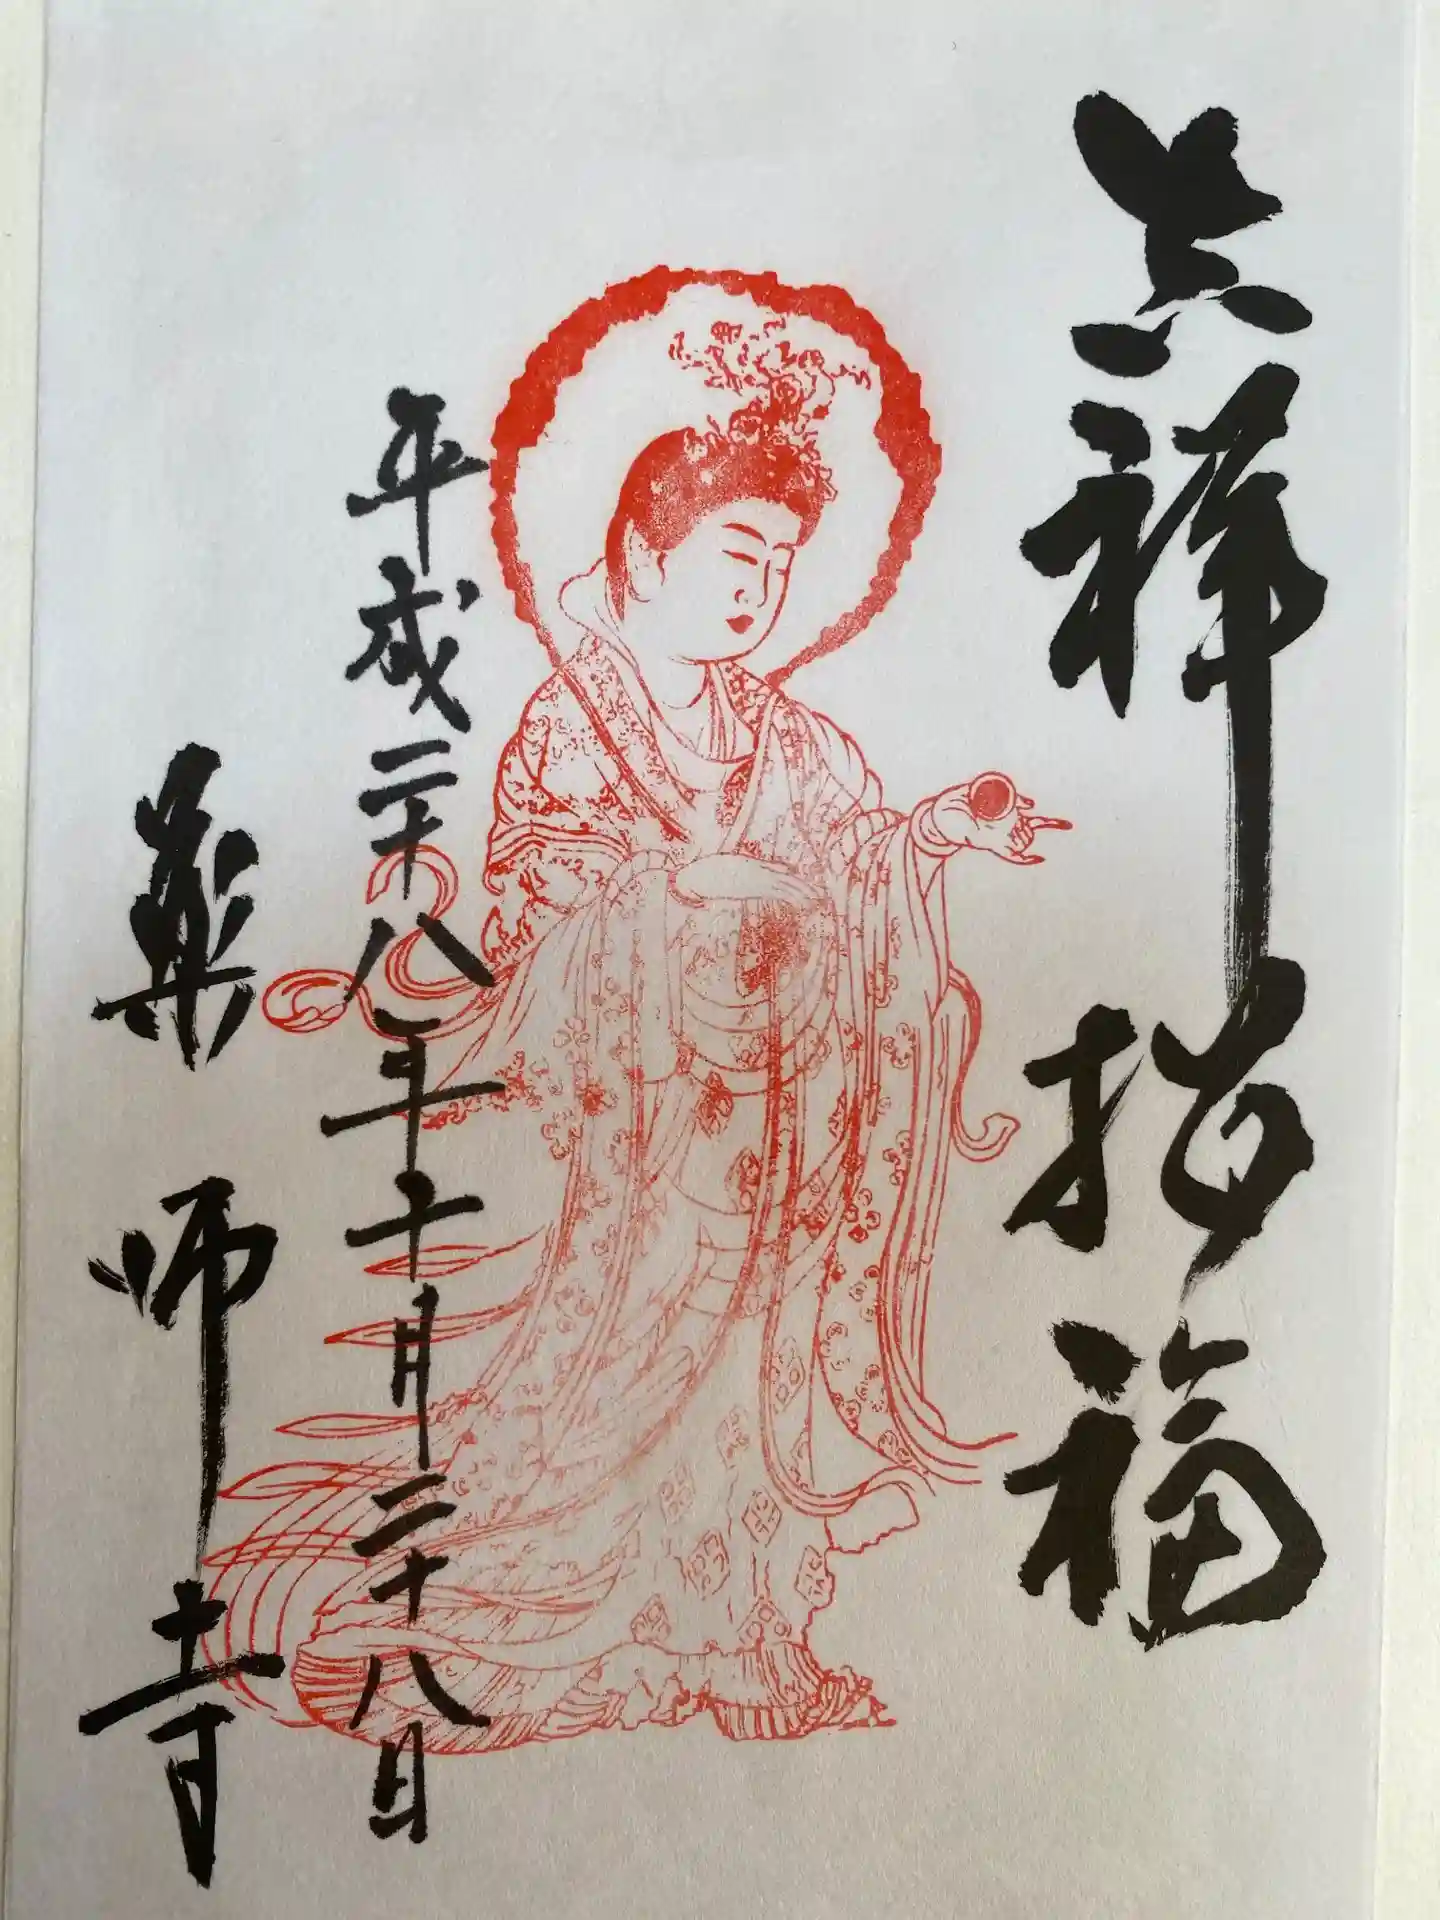 吉祥招福
平成二十八年十月二十八日
薬師寺